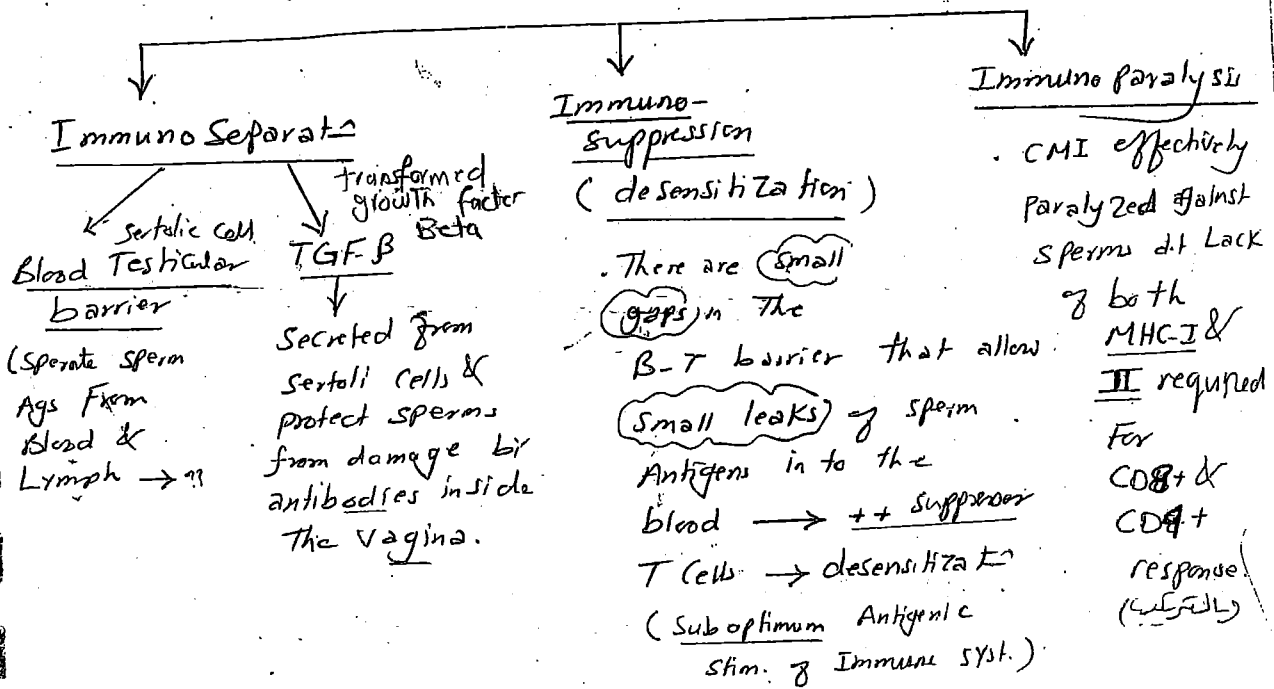 Immuno Separatn
sertolic cell
Blood Testicular
barrier
(Sperate sperm
Ags From
Blood &
Lymph →
transformed
growth factor
Beta
TGF-β
secreted from
sertoli cells &
protect sperms
from damage by
antibodies inside
The vagina.
Immuno-
suppression
(desensitization)
. There are small
gaps in the
B-T barrier that allow
small leaks of sperm
Antigens in to the
blood → ++ suppressor
T Cells → desensitizatn
(Suboptimum Antigenic
stim. of Immune syst.)
Immuno paralysis
. CMI effectively
paralyzed against
sperms d.t Lack
of both
MHC-I &
II required
For
CD8+ &
CD4+
response.
(بالترتيب)